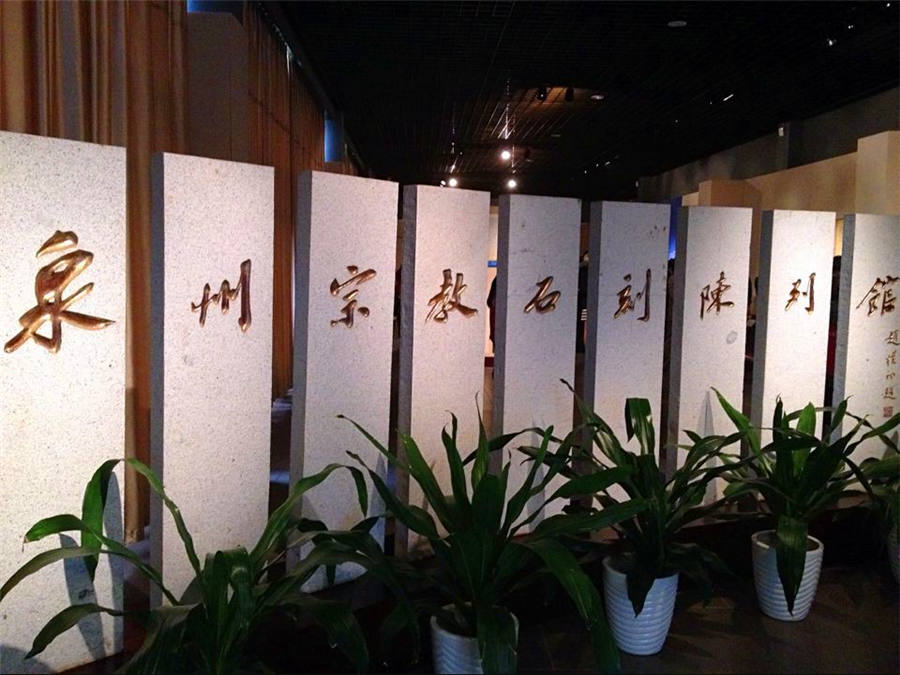 泉州宗教石刻陳列館
趙樸初題